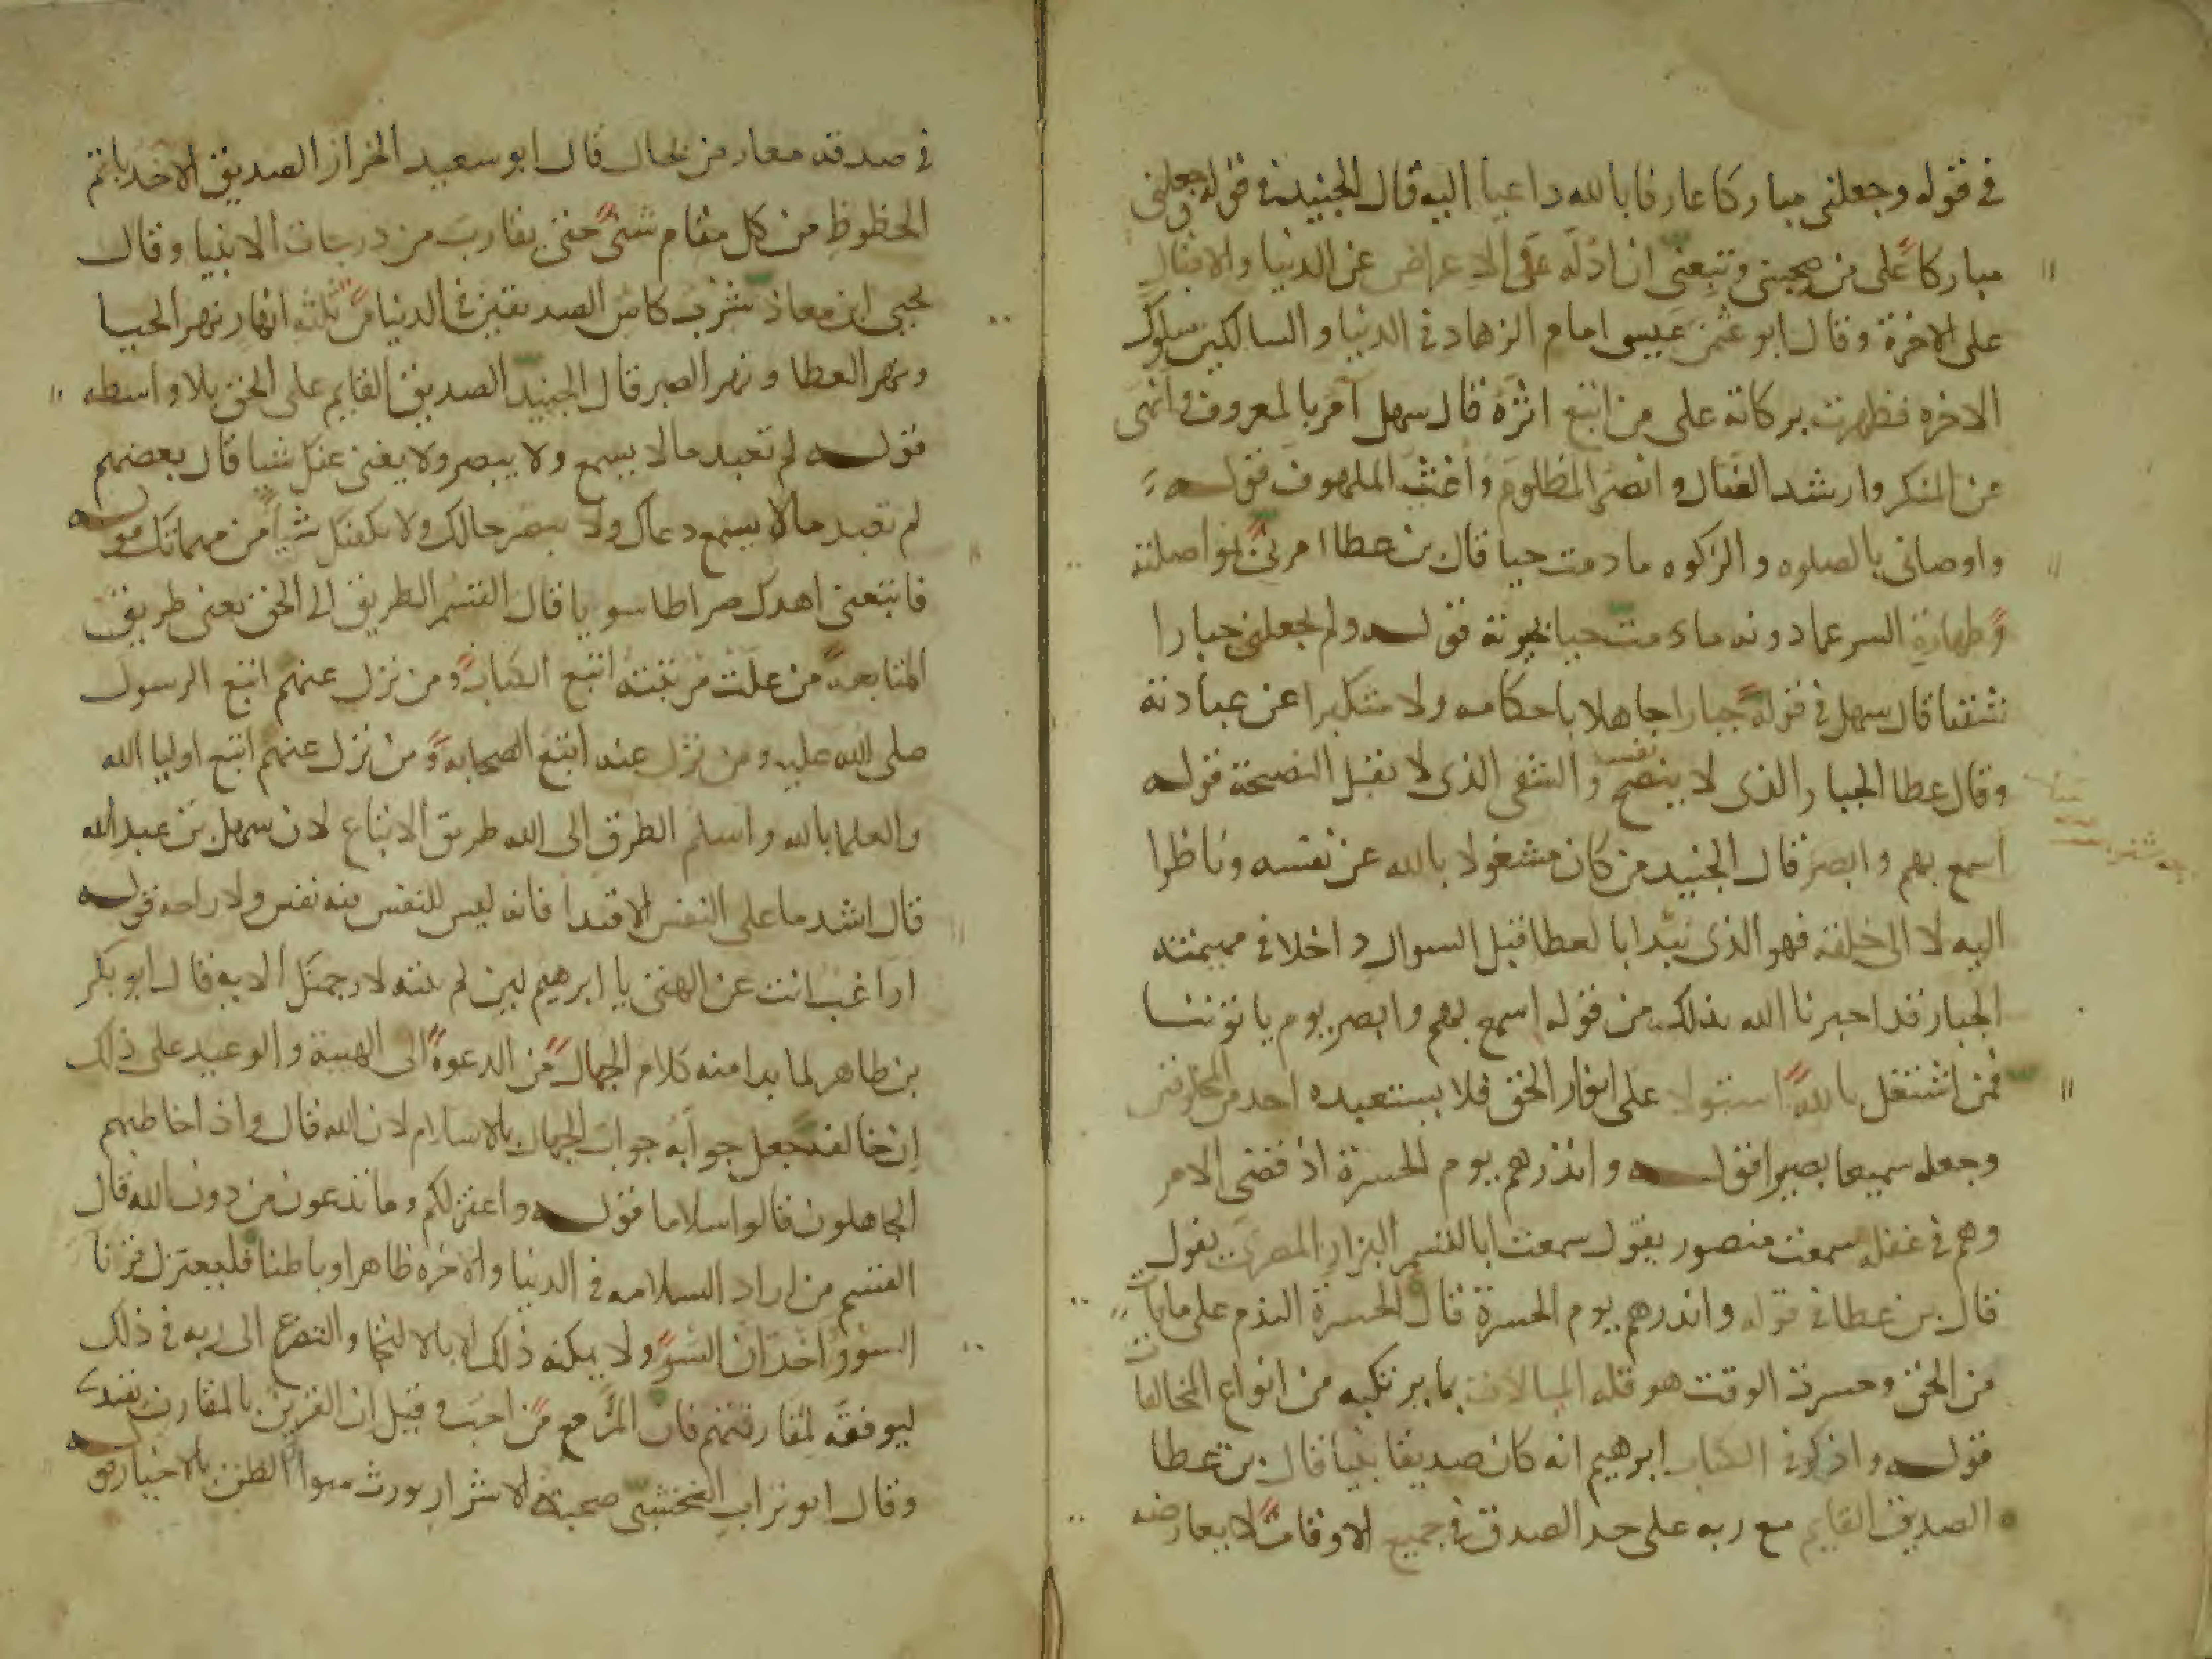 في قوله وجعلني مباركا عارفا بالله داعيا اليه قال الجنيد في قوله وجعلني
مباركا على من صحبني وتبعني ان ادله على الاعراض عن الدنيا والاقبال
على الاخرة وقال ابو عثمن عيسى امام الزهاد في الدنيا والسالكين سلوك
الاخره فظهرت بركاته على من اتبع اثره قال سهل آمر بالمعروف وانهى
عن المنكر وارشد الضال وانصر المظلوم واغيث الملهوف قوله
واوصاني بالصلوه والزكوه ما دمت حيا قال بن عطا امرني بمواصلته
وطهارة السر عما دونه ما دمت حيا بحيوته قوله ولم يجعلني جبارا
شقيا قال سهل في قوله جبارا جاهلا باحكامه ولا متكبرا عن عبادته
وقال عطا الجبار الذي لا ينصح والشقي الذي لا يقبل النصيحة قوله
اسمع بهم وابصر قال الجنيد من كان مشغولا بالله عن نفسه وناظرا
اليه لا الى خلقه فهو الذي يبدا بالعطا قبل السوال داخلا في مهيمنته
الجبار قد اخبرنا الله بذلك من قوله اسمع بهم وابصر يوم ياتوننا
فمن اشتغل بالله استولا على انوار الحق فلا يستعبده احد من المخلوقين
وجعله سميعا بصيرا قوله وانذرهم يوم الحسرة اذ قضى الامر
وهم في غفلة سمعت منصور يقول سمعت ابا القسم البزاز المصري يقول
قال بن عطا في قوله وانذرهم يوم الحسرة قال الحسرة الندم على ما فات
من الحق وحسرة الوقت هو قله المبالاة بما يرتكبه من انواع المخالفات
قوله واذكر في الكتاب ابرهيم انه كان صديقا نبيا قال بن عطا
الصديق القايم مع ربه على حد الصدق في جميع الاوقات لا يعارضه
في صدقه معارض بحال قال ابو سعيد الخراز الصديق الاخذ باتم
الحظوظ من كل مقام شئ حتى يقارب من درجات الانبيا وقال
يحيى ابن معاذ شرب كاس الصديقين في الدنيا من ثلثه انهار نهر الحيا
ونهر العطا ونهر الصبر قال الجنيد الصديق القايم على الحق بلا واسطه
قوله لم تعبد ما لا يسمع ولا يبصر ولا يغني عنك شيا قال بعضهم
لم تعبد ما لا يسمع دعاك ولا يبصر حالك ولا يكفيك شيا من مهماتك قوله
فاتبعني اهدك صراطا سويا قال القسم الطريق الى الحق يعني طريق
المتابعة من علت مرتبته اتبع الكتاب ومن نزل عنهم اتبع الرسول
صلى الله عليه ومن نزل عنه اتبع الصحابه ومن نزل عنهم اتبع اوليا الله
والعلما بالله واسلم الطرق الى الله طريق الاتباع لان سهل بن عبد الله
قال اشد ما على النفس الاقتدا فانه ليس للنفس فيه نفس ولا راحه قوله
اراغب انت عن الهتي يا ابرهيم لين لم تنته لارجمنك الايه قال ابو بكر
بن طاهر لما بدا منه كلام الجهال من الدعوة الى الهته والوعيد على ذلك
ان خالفه جعل جوابه جواب الجهال بالاسلام لان الله قال واذا خاطبهم
الجاهلون قالوا سلاما قوله واعتزلكم وما تدعون من دون الله قال
القسم من اراد السلامه في الدنيا والاخره ظاهرا وباطنا فليعتزل قرنا
السوء واخدان السوء ولا يمكنه ذلك الا بالالتجا والتضرع الى ربه في ذلك
ليوفقه لمفارقتهم فان المرء مع من احب وقيل ان القرين بالمقارن يقتدي
وقال ابو تراب النخشبي صحبة الاشرار يورث سوا الظن بالاخيار قوله